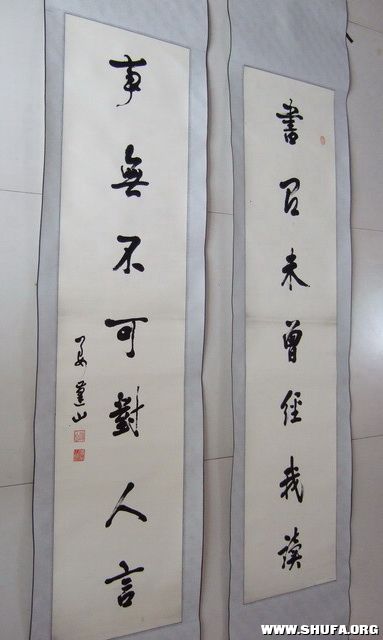 書有未曾經我讀
事無不可對人言
山
WWW.SHUFA.ORG